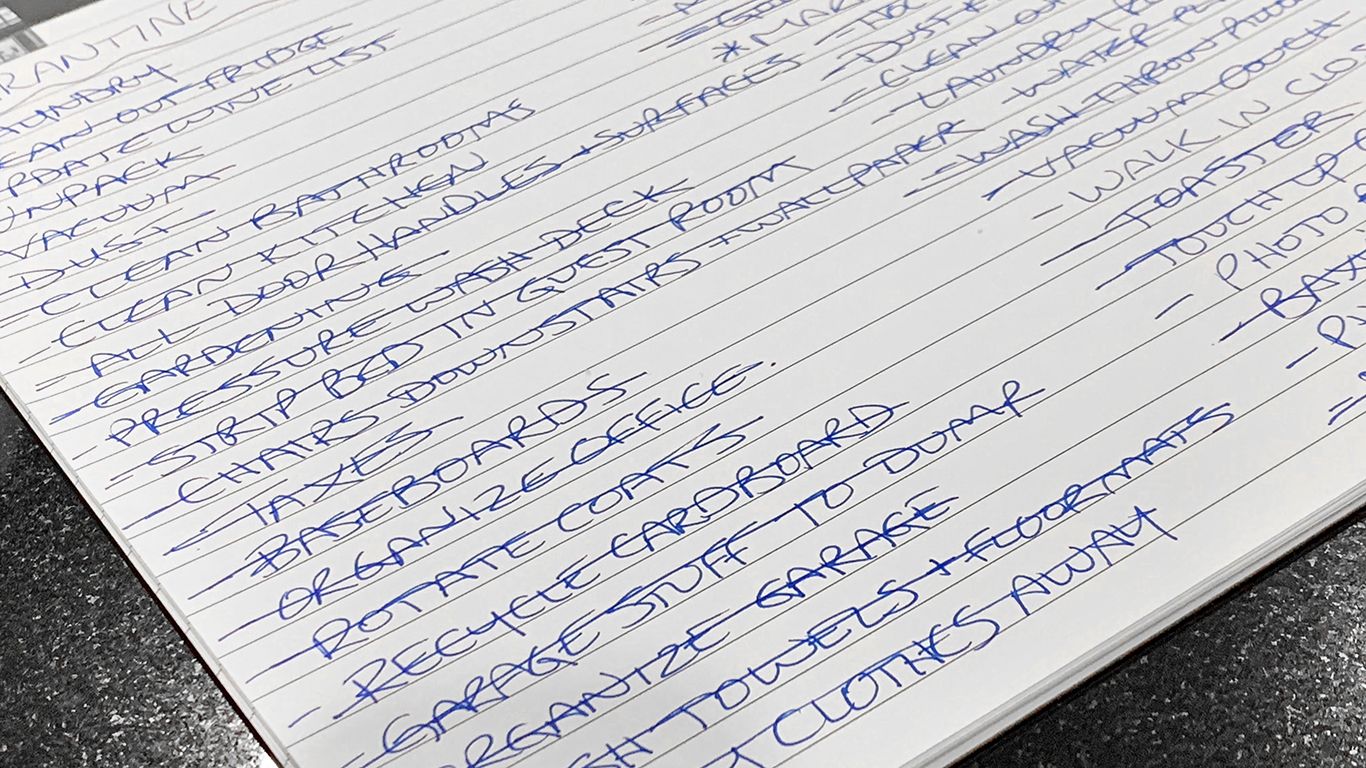 RANTINE
LAUNDRY
CLEAN OUT FRIDGE
UPDATE WINE LIST
UNPACK
VACUUM
- DUST
- CLEAN BATHROOMS
- CLEAN KITCHEN
- ALL DOOR HANDLES + SURFACES
- GARDENING
- PRESSURE WASH DECK
- STRIP BED IN GUEST ROOM
- CHAIRS DOWNSTAIRS + WALLPAPER
- TAXES
- BASEBOARDS
- ORGANIZE OFFICE.
- ROTATE COATS
- RECYCLE CARDBOARD
- GARAGE STUFF TO DUMP
ORGANIZE GARAGE
TOWELS + FLOORMATS
CLOTHES AWAY
- DUST
- CLEAN
- LAUNDRY
- WATER
- WASH THROW
- VACUUM COUCH
- WALK IN
- TOASTER
- TOUCH UP
- PHOTO